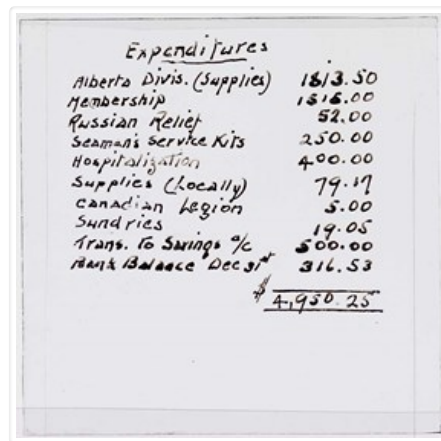 Expenditures
Alberta Divis. (Supplies) 1813.50
Membership 1515.00
Russian Relief 52.00
Seaman's Service Kits 250.00
Hospitalization 400.00
Supplies (Locally) 79.17
Canadian Legion 5.00
Sundries 19.05
Trans. To Savings a/c 500.00
Bank Balance Dec 31st 316.53
$ 4,950.25